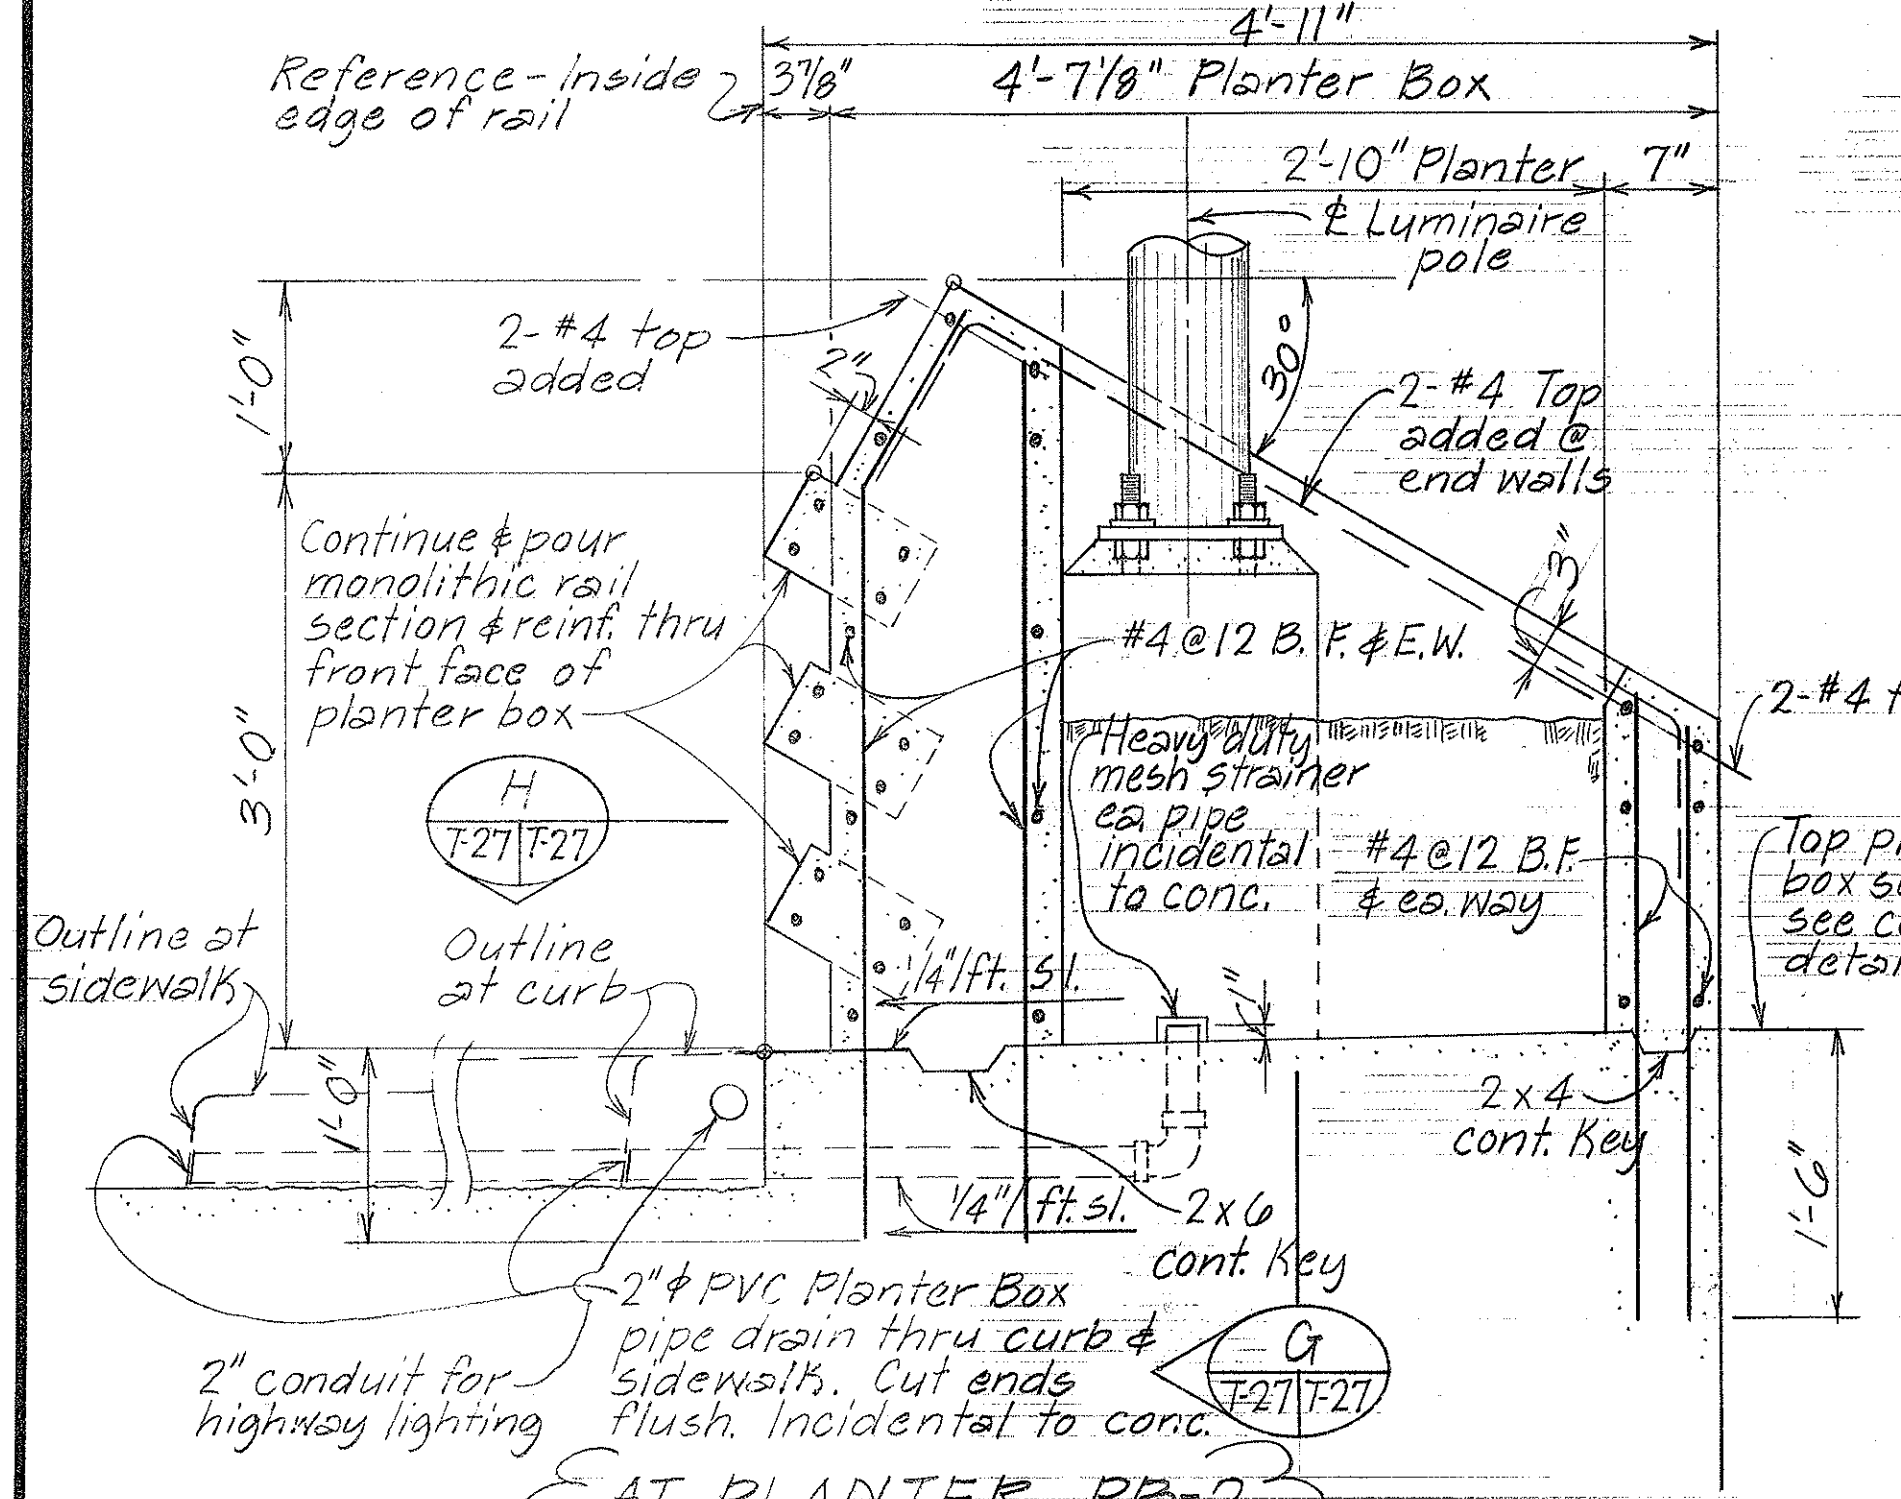 4'-11"
Reference-Inside
edge of rail
3 7/8"
4'-7 1/8" Planter Box
2'-10" Planter
7"
℄ Luminaire
pole
2-#4 top
added
2"
30°
1'-0"
2-#4 Top
added @
end walls
Continue & pour
monolithic rail
section & reinf. thru
front face of
planter box
3"
#4@12 B.F. & E.W.
2-#4
3'-0"
H
T-27 T-27
Heavy duty
mesh strainer
ea. pipe
incidental
to conc.
#4@12 B.F.
& ea. way
Top
box
see
Outline at
sidewalk
Outline
at curb
1/4"/ft. sl.
1"
1'-0"
2x4
cont. Key
1'-6"
1/4"/ft. sl.
2x6
cont. Key
2"ϕ PVC Planter Box
pipe drain thru curb &
sidewalk. Cut ends
flush. Incidental to conc.
G
T-27 T-27
2" conduit for
highway lighting
AT PLANTER PB-2